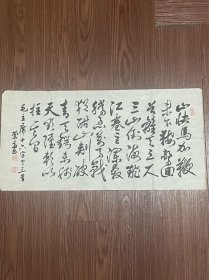 山快馬加鞭
未下鞍驚回
首離天三尺
三山倒海翻
江卷巨瀾奔
騰急萬馬戰
猶酣山刺破
青天鍔未殘
天欲墮賴以
拄其間
毛主席十六字令三首